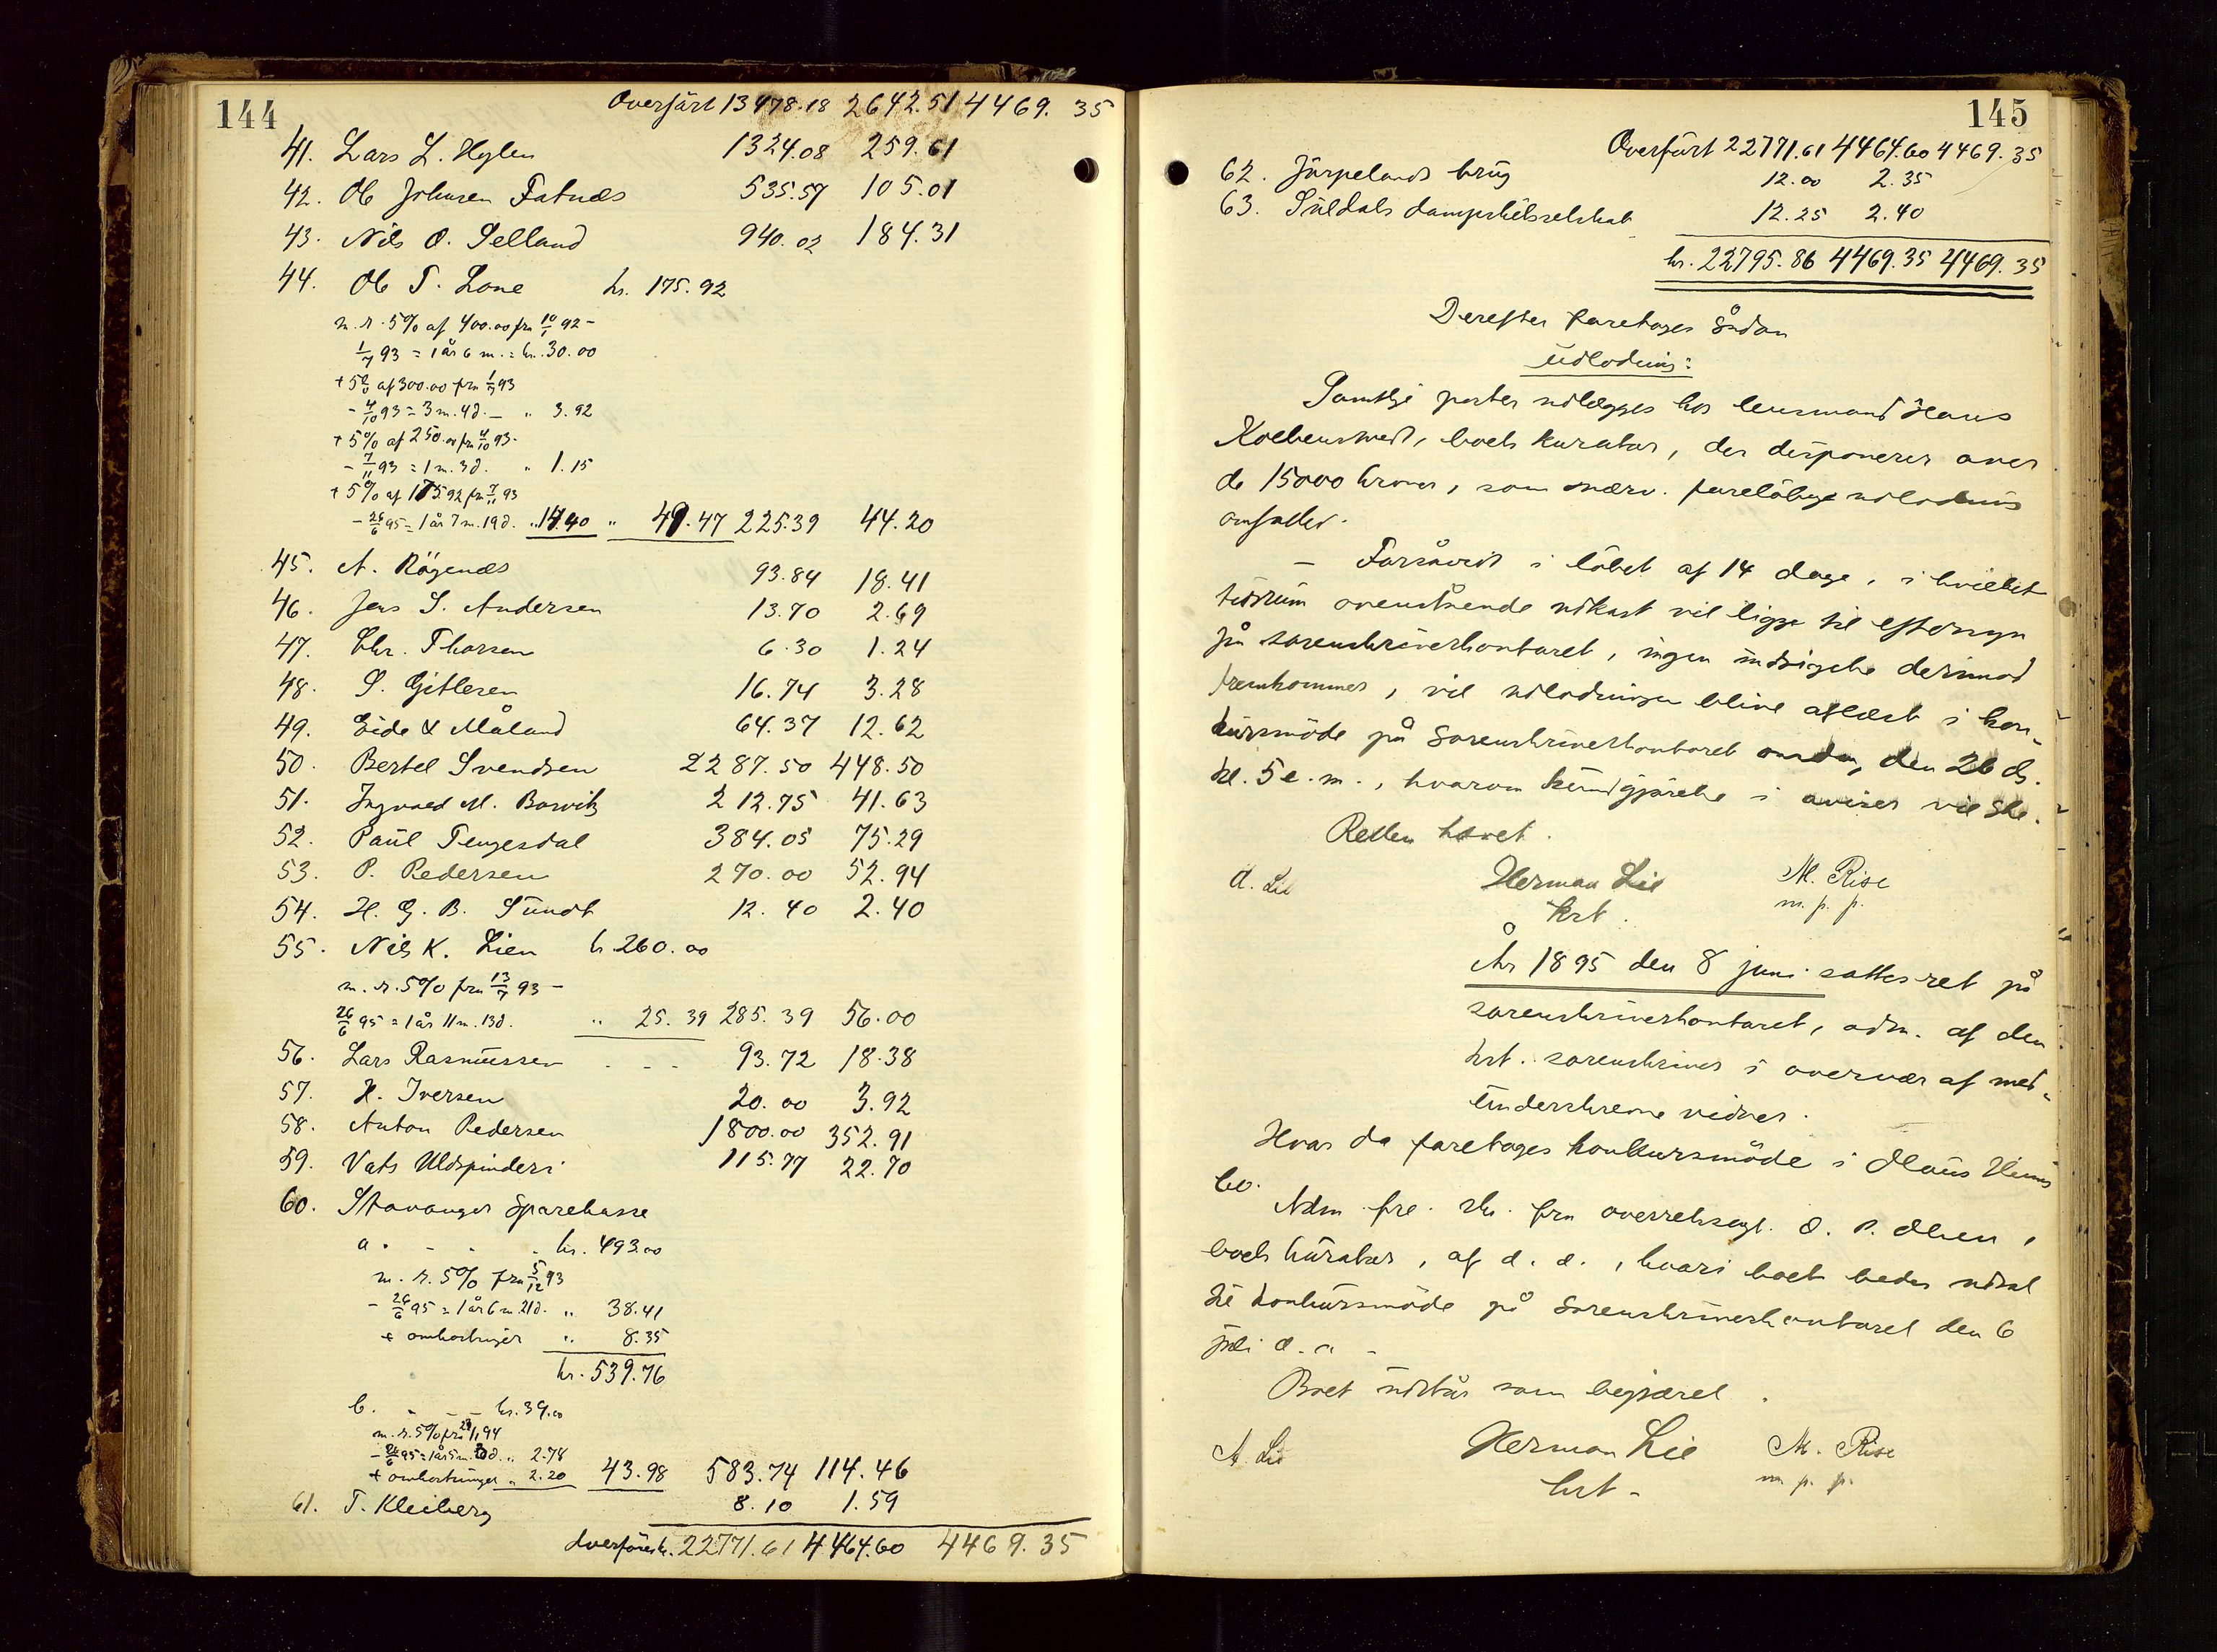 144
Overført 13478.18 2642.51 4469.35
41. Lars L. Hylen 1324.08 259.61
42. Ole Johnsen Fatnæs 535.57 105.01
43. Nils O. Selland 940.02 184.31
44. Ole T. Lone kr. 175.92
m. r. 5% af 400.00 fra 10/1 92 -
1/7 93 = 1 år 6 m. = kr. 30.00
+ 5% af 300.00 fra 1/7 93
- 4/10 93 = 3 m. 4 d. - " 3.92
+ 5% af 250.00 fra 4/10 93 -
- 7/11 93 = 1 m. 3 d. " 1.15
+ 5% af 175.92 fra 7/11 93
- 26/6 95 = 1 år 7 m. 19 d. " 14.40 " 49.47 225.39 44.20
45. A. Rögenæs 93.84 18.41
46. Jens S. Andersen 13.70 2.69
47. Chr. Thorsen 6.30 1.24
48. S. Gitlesen 16.74 3.28
49. Eide & Måland 64.37 12.62
50. Bertel Svendsen 2287.50 448.50
51. Ingvald M. Borvik 212.75 41.63
52. Paul Tengesdal 384.05 75.29
53. P. Pedersen 270.00 52.94
54. H. G. B. Sundt 12.40 2.40
55. Nils K. Lien kr 260.00
m. r. 5% fra 13/7 93 -
26/6 95 = 1 år 11 m. 13 d. " 25.39 285.39 56.00
56. Lars Rasmussen - - - 93.72 18.38
57. H. Iversen 20.00 3.92
58. Anton Pedersen 1800.00 352.91
59. Vats Uldspinderi 115.77 22.70
60. Stavanger Sparekasse
a. - - - kr. 493.00
m. r. 5% fra 5/12 93
- 26/6 95 = 1 år 6 m. 21 d. " 38.41
+ omkostninger " 8.35
kr. 539.76
b. - - - kr. 39.00
m. r. 5% fra 94
- 26/6 95 = 1 år 5 m. d. " 2.78
+ omkostninger " 2.20 43.98 583.74 114.46
61. T. Kleiberg 8.10 1.59
Overføres kr. 22771.61 4464.60 4469.35
145
Overført 22771.61 4464.60 4469.35
62. Jörpelands brug 12.00 2.35
63. Suldals dampskibsselskab 12.25 2.40
kr. 22795.86 4469.35 4469.35
Derefter foretoges sådan
udlodning:
Samtlige poster udlægges hos lensmand Hans
Kolbenstvedt, boets kurator, der disponerer over
de 15000 kroner, som nærv. foreløbige udlodning
omfatter.
- Forsåvidt i löbet af 14 dage, i hvilket
tidsrum ovenstående udkast vil ligge til eftersyn
på sorenskriverkontoret, ingen indsigelse derimod
fremkommer, vil udlodningen blive aflæst i kon-
kursmöde på sorenskriverkontoret onsdag, den 26 ds.
kl. 5 e. m., hvorom kundgjørelse i aviser vil ske.
Retten hævet.
A. Lie Herman Lie M. Rise
kst. m. p. p.
År 1895 den 8 juni sattes ret på
sorenskriverkontoret, adm. af den
kst. sorenskriver i overvær af med-
underskrevne vidner.
Hvor da foretoges konkursmöde i
bo.
Adm. fre. skr. fra overretssagf. O. P. Olsen,
boets kurator, af d. d., hvori boet bedes udsat
til konkursmöde på sorenskriverkontoret den 6
juli d. a. -
Boet udstår som begjæret.
A. Lie Herman Lie M. Rise
kst. - m. p. p.